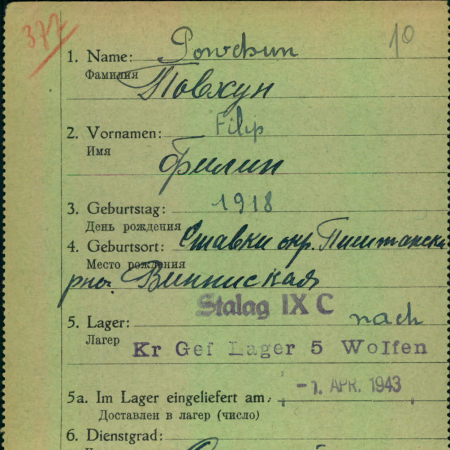 377
10
1. Name: Powchun
Фамилия
Повхун
2. Vornamen: Filip
Имя
Филип
3. Geburtstag: 1918
День рождения
4. Geburtsort: Ставки окр.
Место рождения
Винниская
Stalag IX C
5. Lager: nach
Лагер
Kr Gef Lager 5 Wolfen
-1. APR. 1943
5a. Im Lager eingeliefert am:
Доставлен в лагер (число)
6. Dienstgrad: